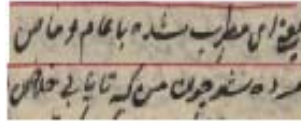 یعنی ای مطرب شده با عام و خاص
مرده شو چون من که تا یابی خلاص